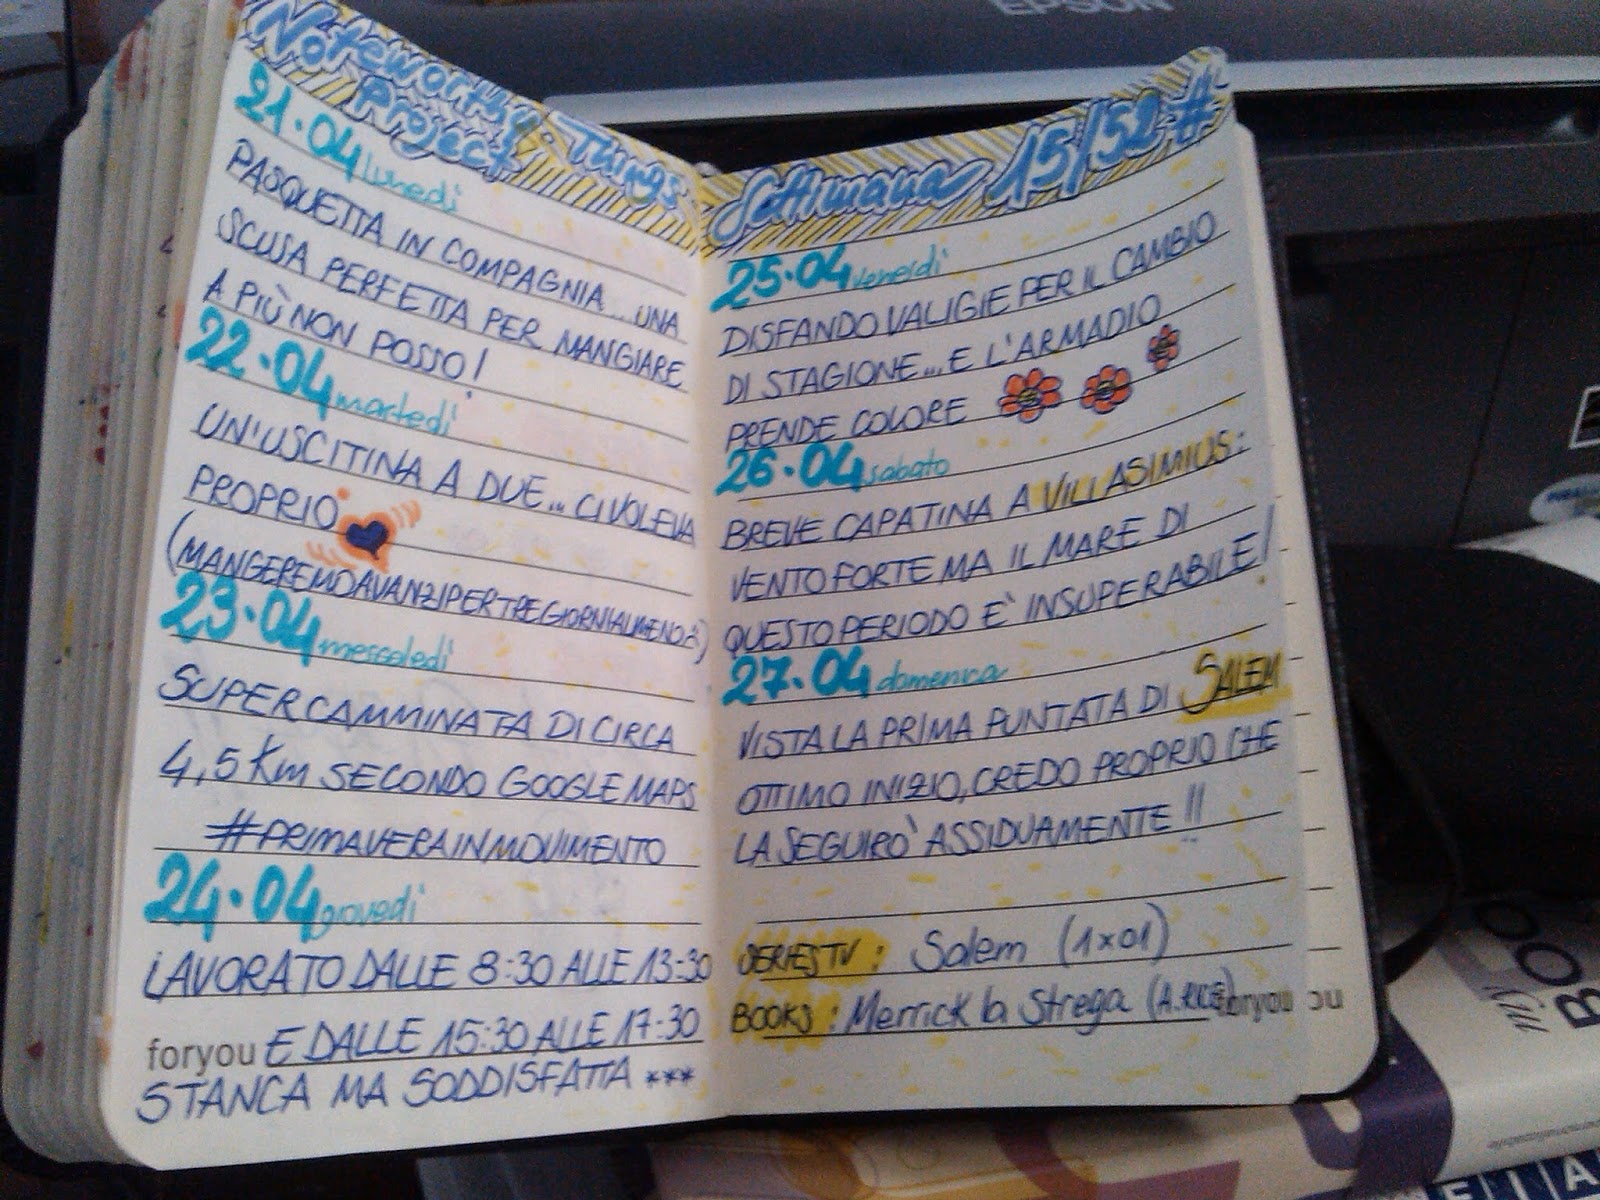 EPSON
Noteworthy Things
Project
21.04 lunedì
PASQUETTA IN COMPAGNIA...UNA
SCUSA PERFETTA PER MANGIARE
A PIÙ NON POSSO!
22.04 martedì
UN'USCITINA A DUE... CI VOLEVA
PROPRIO
(MANGEREMOAVANZIPERTREGIORNIALMENO
23.04 mercoledì
SUPER CAMMINATA DI CIRCA
4,5 Km SECONDO GOOGLE MAPS
#PRIMAVERAINMOVIMENTO
24.04 giovedì
LAVORATO DALLE 8:30 ALLE 13:30
foryou E DALLE 15:30 ALLE 17:30
STANCA MA SODDISFATTA ***
Settimana 15/52 #
25.04 venerdì
DISFANDO VALIGIE PER IL CAMBIO
DI STAGIONE... E L'ARMADIO
PRENDE COLORE
26.04 sabato
BREVE CAPATINA A VILLASIMIUS:
VENTO FORTE MA IL MARE DI
QUESTO PERIODO E' INSUPERABILE!
27.04 domenica
VISTA LA PRIMA PUNTATA DI SALEM
OTTIMO INIZIO, CREDO PROPRIO CHE
LA SEGUIRO' ASSIDUAMENTE!!
SERIESTV: Salem (1x01)
BOOKS: Merrick la Strega (A. RICE) foryou ou